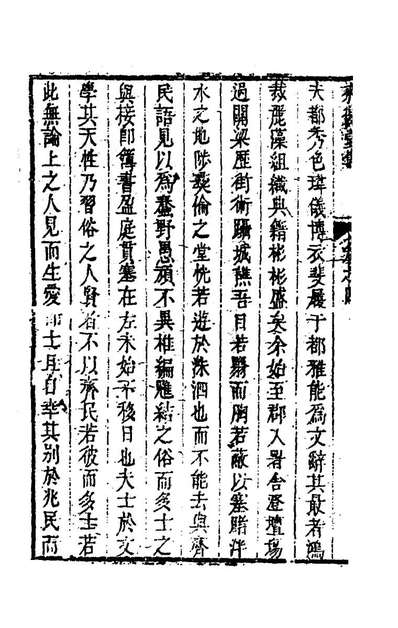 夫都秀色瑋儀博衣斐履于都雅能為文辭其最者鴻
裁麗藻組織典籍彬彬盛矣余始至郡入署舍登壇場
過關梁歷街術躡城譙吾目若翳而胸若蔽以塞賭泮
水之地陟彛倫之堂恍若遊於洙泗也而不能去與齊
民語見以為蠢野愚頑不異椎編雕結之俗而多士之
與接即簿書盈庭貫塞在左未始一移目也夫士於文
學其天性乃習俗之人賢者不以齊民若彼而多士若
此無論上之人見而生愛即士且自幸其別於兆民而